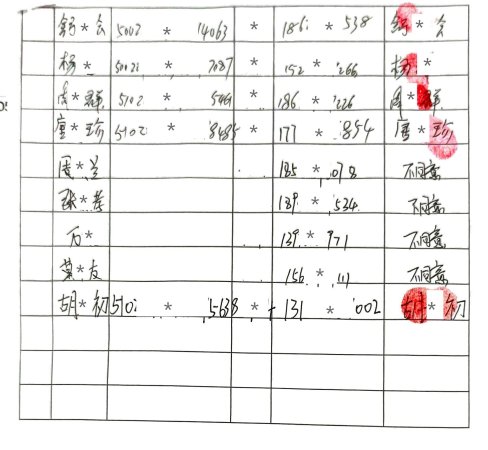 舒*会 5002 * 4063 * 186 * 538 舒*会
杨* 5002 * 7087 * 152 * 266 杨*
周*群 5102 * 544 * 186 * 226 周*群
唐*珍 5102 * 8485 * 177 * 854 唐*珍
周*兰 185 * 078 不同意
张*芳 139 * 534 不同意
万* 139 * 971 不同意
莫*友 156 * 111 不同意
胡*初 510 * 5638 * 131 * 002 胡*初